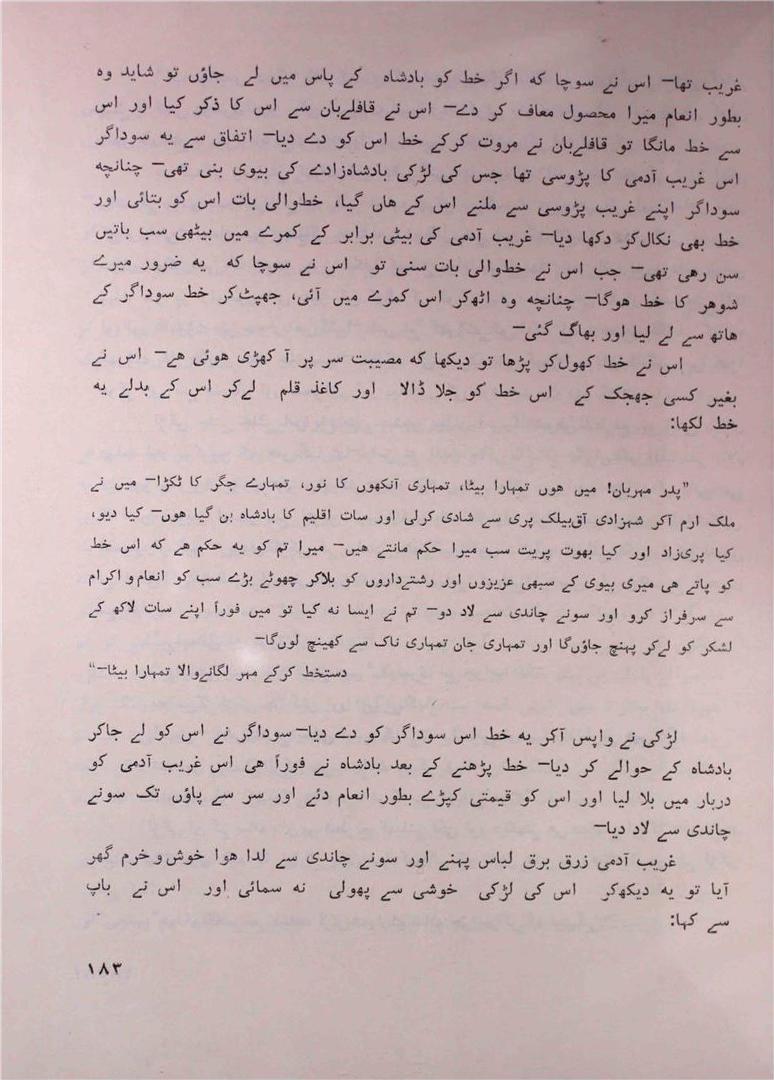 غریب تھا— اس نے سوچا کہ اگر خط کو بادشاہ کے پاس میں لے جاؤں تو شاید وہ
بطور انعام میرا محصول معاف کر دے— اس نے قافلےبان سے اس کا ذکر کیا اور اس
سے خط مانگا تو قافلےبان نے مروت کرکے خط اس کو دے دیا— اتفاق سے یہ سوداگر
اس غریب آدمی کا پڑوسی تھا جس کی لڑکی بادشاہزادے کی بیوی بنی تھی— چنانچہ
سوداگر اپنے غریب پڑوسی سے ملنے اس کے ہاں گیا، خطوالی بات اس کو بتائی اور
خط بھی نکالکر دکھا دیا— غریب آدمی کی بیٹی برابر کے کمرے میں بیٹھی سب باتیں
سن رہی تھی— جب اس نے خطوالی بات سنی تو اس نے سوچا کہ یہ ضرور میرے
شوہر کا خط ہوگا— چنانچہ وہ اٹھکر اس کمرے میں آئی، جھپٹکر خط سوداگر کے
ہاتھ سے لے لیا اور بھاگ گئی—
اس نے خط کھولکر پڑھا تو دیکھا کہ مصیبت سر پر آ کھڑی ہوئی ہے— اس نے
بغیر کسی جھجک کے اس خط کو جلا ڈالا اور کاغذ قلم لےکر اس کے بدلے یہ
خط لکھا:
”پدر مہربان! میں ہوں تمہارا بیٹا، تمہاری آنکھوں کا نور، تمہارے جگر کا ٹکڑا— میں نے
ملک ارم آکر شہزادی آقبیلک پری سے شادی کرلی اور سات اقلیم کا بادشاہ بن گیا ہوں— کیا دیو،
کیا پریزاد اور کیا بھوت پریت سب میرا حکم مانتے ہیں— میرا تم کو یہ حکم ہے کہ اس خط
کو پاتے ہی میری بیوی کے سبھی عزیزوں اور رشتےداروں کو بلاکر چھوٹے بڑے سب کو انعام و اکرام
سے سرفراز کرو اور سونے چاندی سے لاد دو— تم نے ایسا نہ کیا تو میں فوراً اپنے سات لاکھ کے
لشکر کو لےکر پہنچ جاؤںگا اور تمہاری جان تمہاری ناک سے کھینچ لوںگا—
دستخط کرکے مہر لگانےوالا تمہارا بیٹا—“
لڑکی نے واپس آکر یہ خط اس سوداگر کو دے دیا— سوداگر نے اس کو لے جاکر
بادشاہ کے حوالے کر دیا— خط پڑھنے کے بعد بادشاہ نے فوراً ہی اس غریب آدمی کو
دربار میں بلا لیا اور اس کو قیمتی کپڑے بطور انعام دئے اور سر سے پاؤں تک سونے
چاندی سے لاد دیا—
غریب آدمی زرق برق لباس پہنے اور سونے چاندی سے لدا ہوا خوش و خرم گھر
آیا تو یہ دیکھکر اس کی لڑکی خوشی سے پھولی نہ سمائی اور اس نے باپ
سے کہا:
۱۸۳